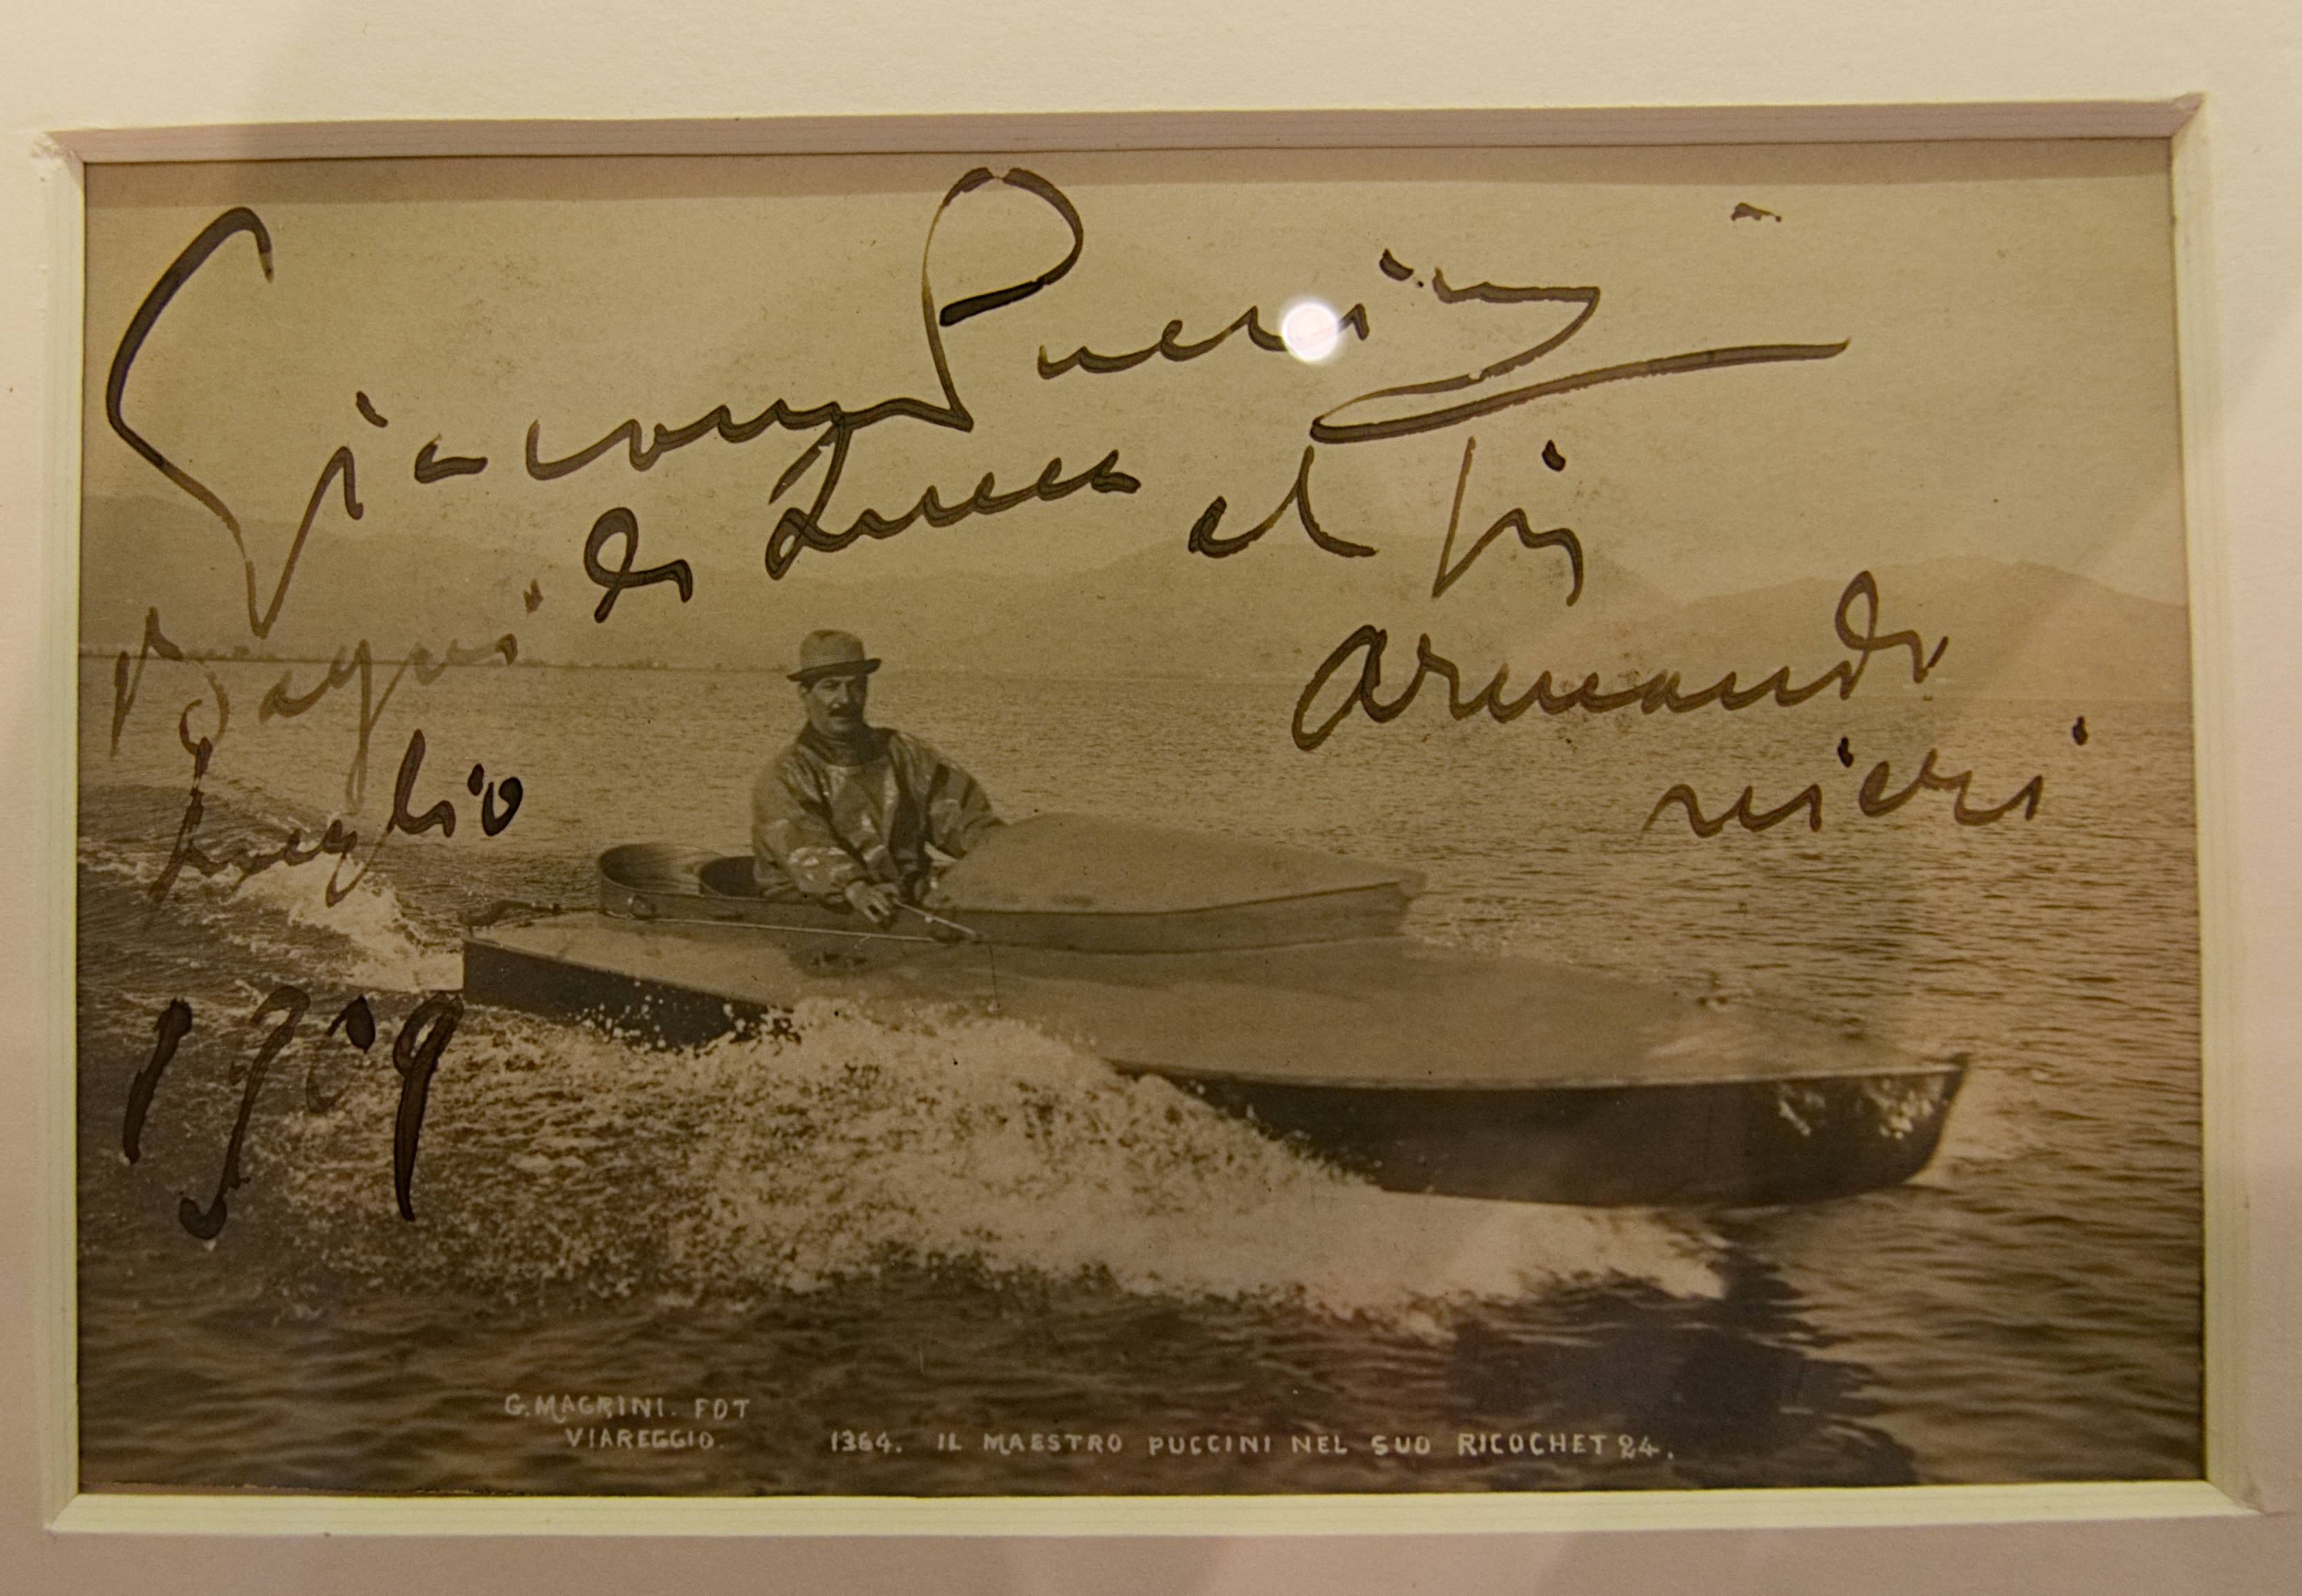 Giacomo Puccini
Bagni di Lucca
luglio
1909
al sig
Armando
nieri
G. MAGRINI. FOT
VIAREGGIO.
1364. IL MAESTRO PUCCINI NEL SUO RICOCHET 24.